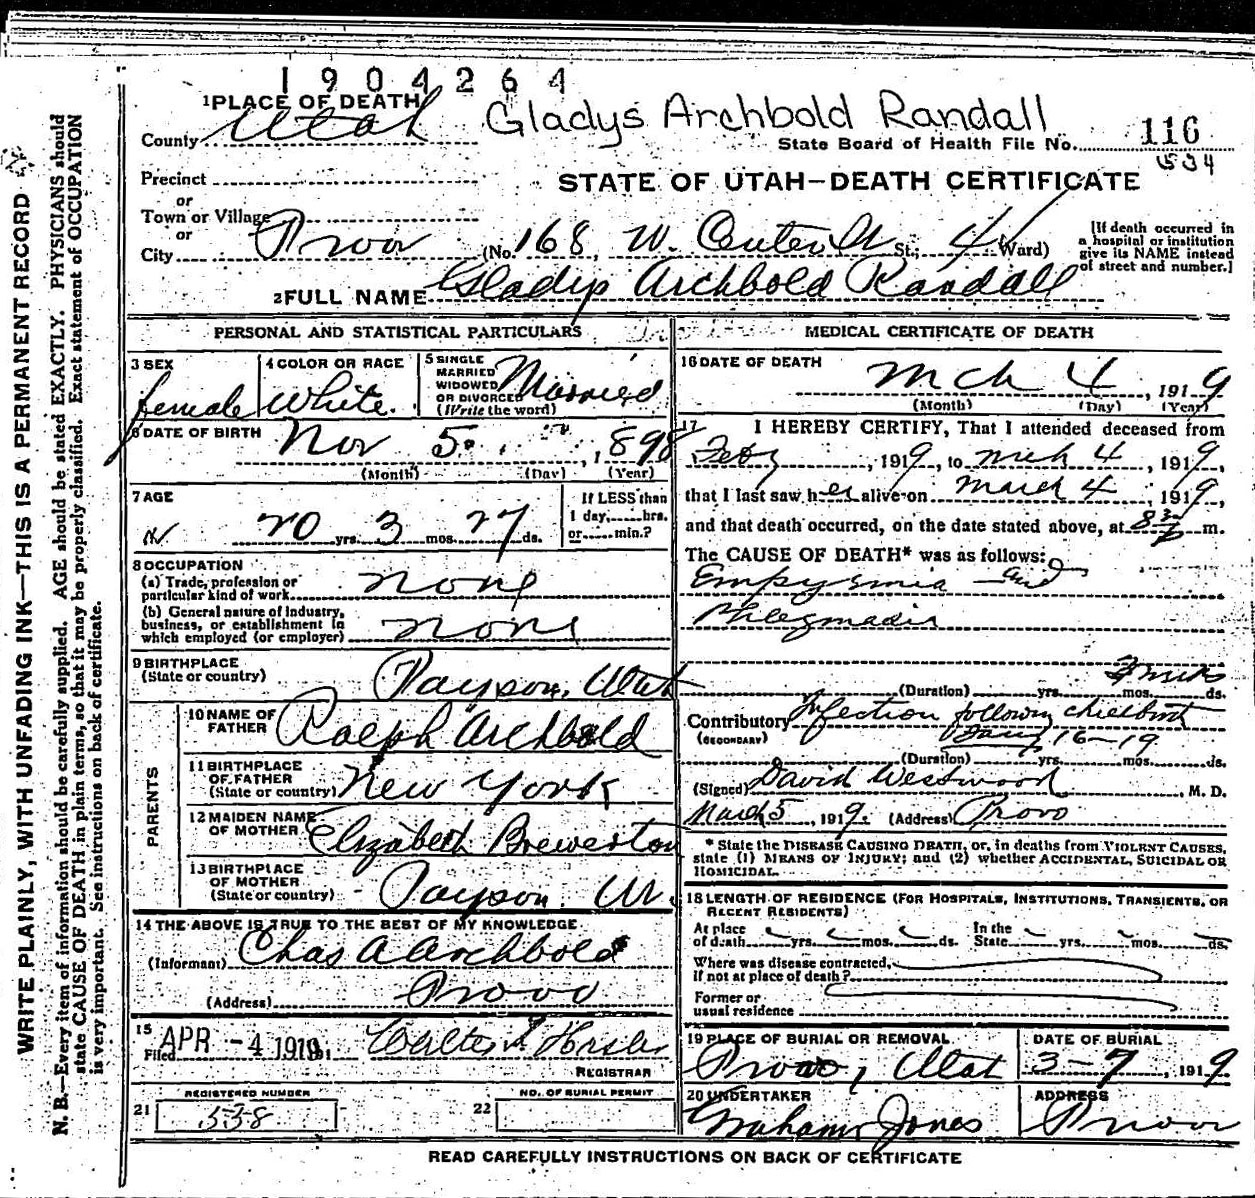 1904264
1 PLACE OF DEATH
Gladys Archbold Randall
County Utah
State Board of Health File No. 116
534
Precinct
STATE OF UTAH—DEATH CERTIFICATE
or
Town or Village
or
City Provo (No. 168 W. Center St St.; 4 Ward)
[If death occurred in a hospital or institution give its NAME instead of street and number.]
2 FULL NAME Gladys Archbold Randall
PERSONAL AND STATISTICAL PARTICULARS
3 SEX
female
4 COLOR OR RACE
White.
5 SINGLE
MARRIED
WIDOWED
OR DIVORCED
(Write the word)
Married
6 DATE OF BIRTH
Nov 5. , 1898
(Month) (Day) (Year)
7 AGE
20 yrs. 3 mos. 27 ds.
If LESS than
1 day,......hrs.
or......min.?
8 OCCUPATION
(a) Trade, profession or
particular kind of work none
(b) General nature of industry,
business, or establishment in
which employed (or employer) none
9 BIRTHPLACE
(State or country) Payson, Utah
PARENTS
10 NAME OF
FATHER Ralph Archbold
11 BIRTHPLACE
OF FATHER
(State or country) New York
12 MAIDEN NAME
OF MOTHER Elizabeth Brewerton
13 BIRTHPLACE
OF MOTHER
(State or country) Payson. Ut.
14 THE ABOVE IS TRUE TO THE BEST OF MY KNOWLEDGE
(Informant) Chas A Archbold
(Address) Provo
15
Filed APR -4 1919 191
REGISTRAR
REGISTERED NUMBER
21 538
NO. OF BURIAL PERMIT
22
MEDICAL CERTIFICATE OF DEATH
16 DATE OF DEATH
Mch 4 , 1919
(Month) (Day) (Year)
17 I HEREBY CERTIFY, That I attended deceased from
Feby , 1919, to Mch 4 , 1919,
that I last saw her alive on March 4 , 1919,
and that death occurred, on the date stated above, at 8 30 m.
The CAUSE OF DEATH* was as follows:
Empysmia and
Phlegmasia
(Duration) yrs. mos. ds.
Contributory Infection following childbirth
(SECONDARY)
Jany 16-19
(Duration) yrs. mos. ds.
(Signed) David Westwood , M. D.
March 5 , 1919. (Address) Provo
* State the DISEASE CAUSING DEATH, or, in deaths from VIOLENT CAUSES,
state (1) MEANS OF INJURY; and (2) whether ACCIDENTAL, SUICIDAL OR
HOMICIDAL.
18 LENGTH OF RESIDENCE (FOR HOSPITALS, INSTITUTIONS, TRANSIENTS, OR
RECENT RESIDENTS)
At place
of death yrs. mos. ds.
In the
State yrs. mos. ds.
Where was disease contracted,
if not at place of death?
Former or
usual residence
19 PLACE OF BURIAL OR REMOVAL
Provo, Utah
DATE OF BURIAL
3-7 , 1919
20 UNDERTAKER
Graham Jones
ADDRESS
Provo
READ CAREFULLY INSTRUCTIONS ON BACK OF CERTIFICATE
WRITE PLAINLY, WITH UNFADING INK—THIS IS A PERMANENT RECORD
N. B.—Every item of information should be carefully supplied. AGE should be stated EXACTLY. PHYSICIANS should
state CAUSE OF DEATH in plain terms, so that it may be properly classified. Exact statement of OCCUPATION
is very important. See instructions on back of certificate.